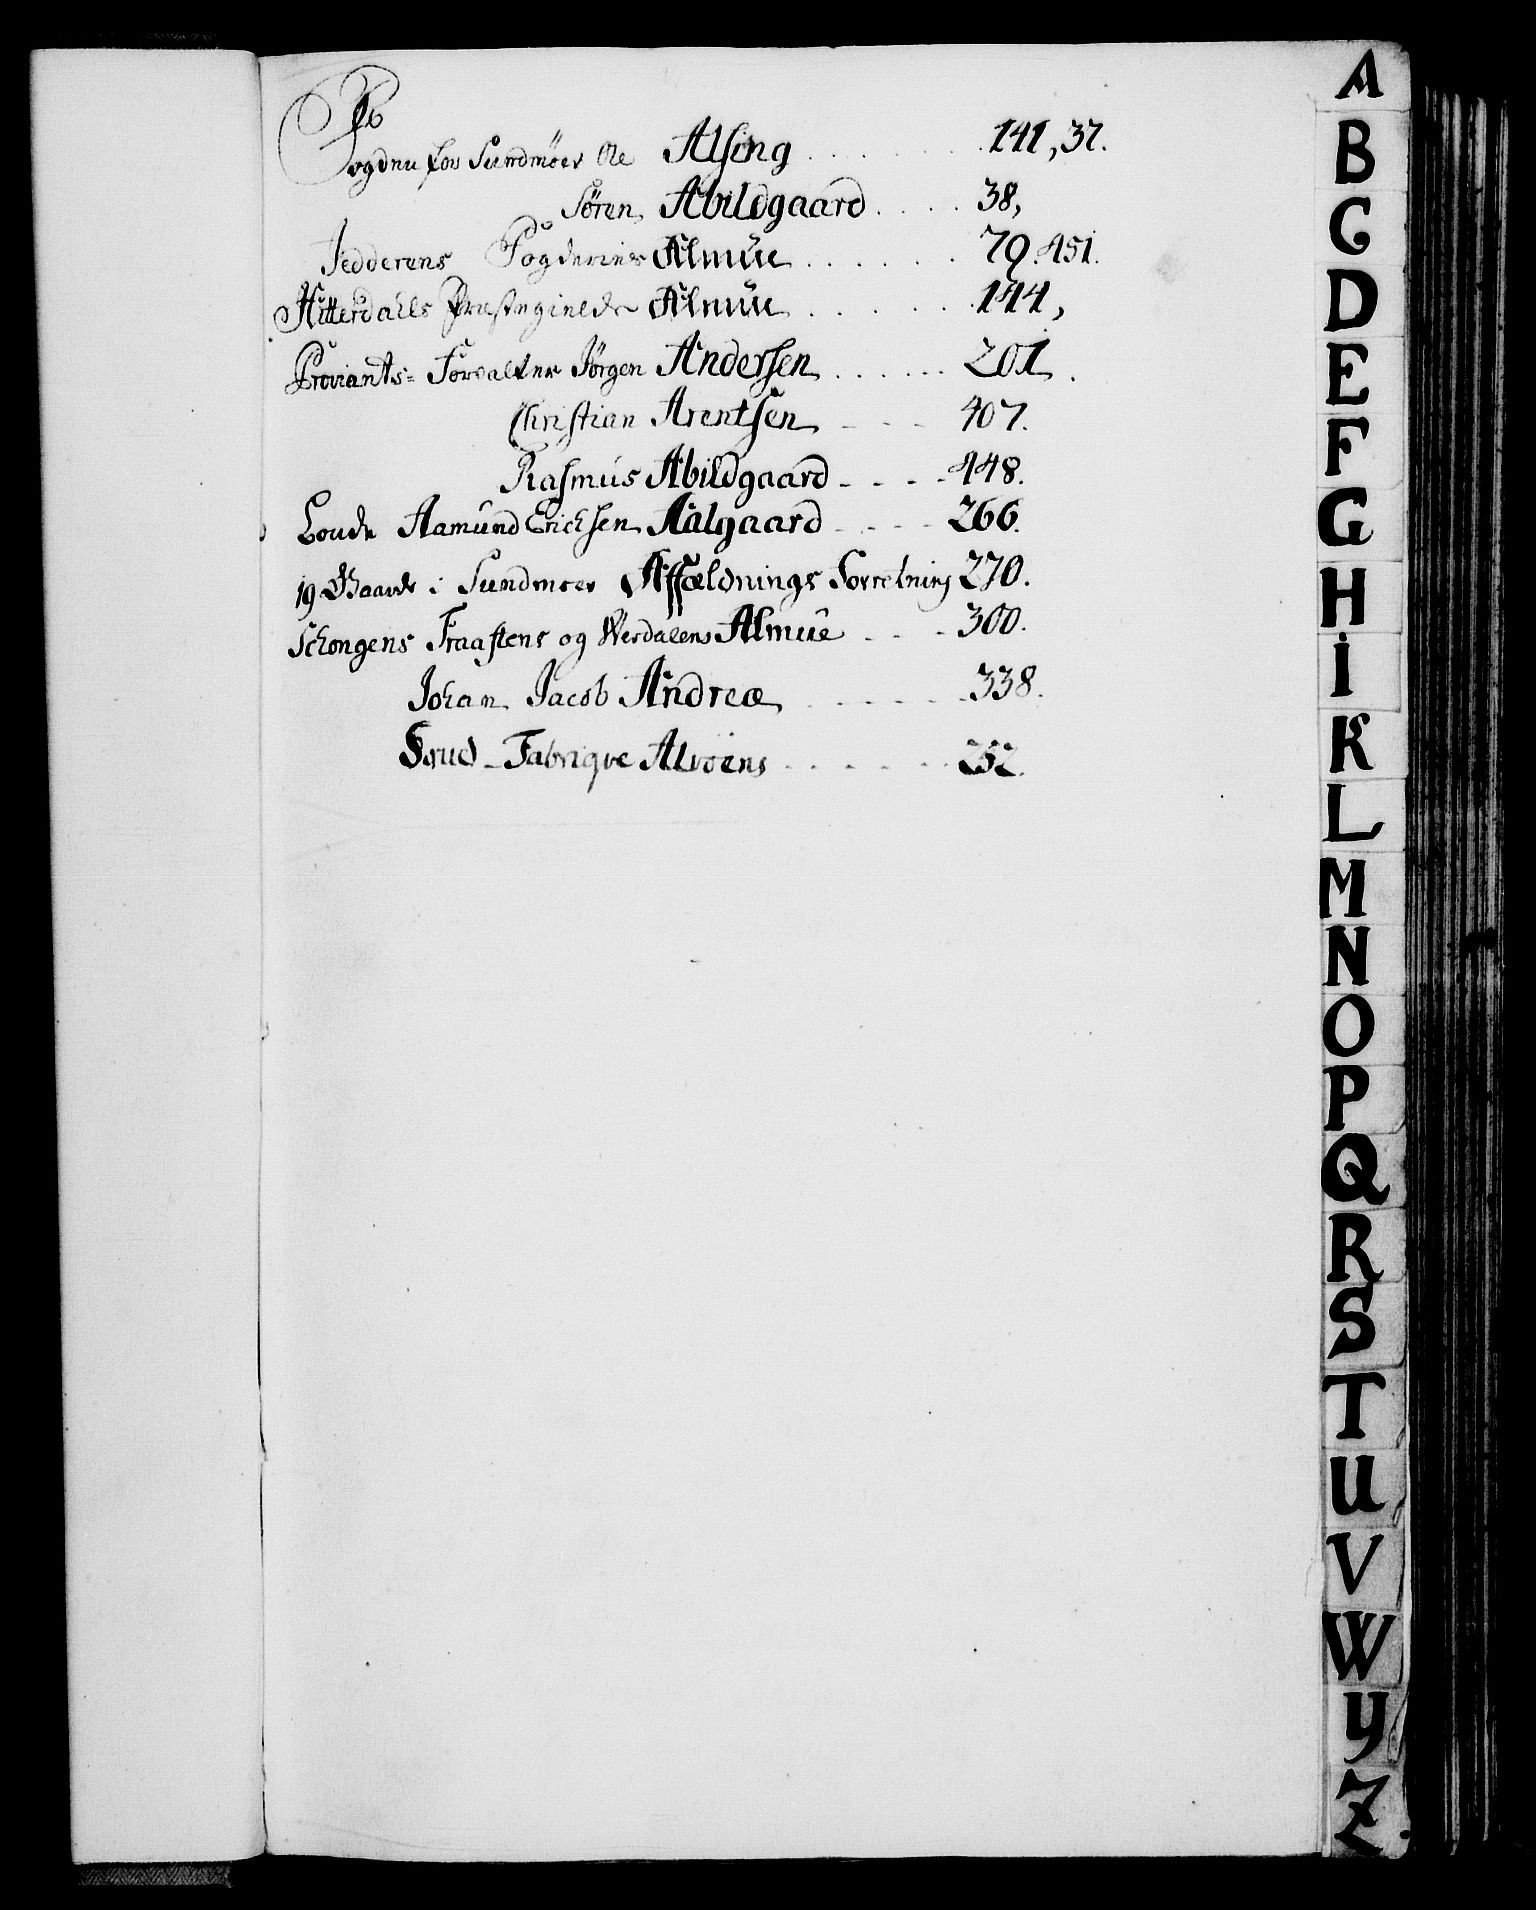 Fogden for Sundmöer Ole Alsing . . . . . . 141, 37.
Sören Abildgaard . . . . 38,
Jedderens Fogderies Almüe . . . . . . 79. 451.
Hitterdahls Præstegields Almüe . . . . . . 144,
Proviants= Forvalter Jörgen Andersen . . . . . . 201.
Christian Arentsen - - - 407.
Rasmus Abildgaard - - - - 448.
Aamund Erichsen Aalgaard - - - - 266.
19 Gaarde i Sundmoer Affældnings Forretning 270.
Schongens Fraastens og Werdalens Almüe - - - 300.
Johan Jacob Andreæ - - - - - - 338.
Krud - Fabrique Alvöens - - - - - - 252.
A
B
C
D
E
F
G
H
I
K
L
M
N
O
P
Q
R
S
T
U
V
W
Y
Z